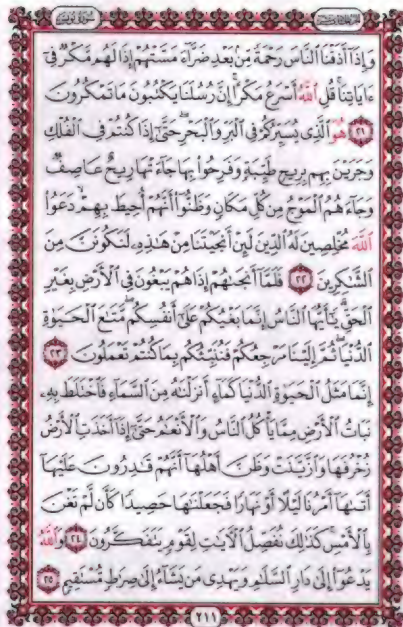 سورة يونس
وَإِذَآ أَذَقْنَا ٱلنَّاسَ رَحْمَةً مِّنۢ بَعْدِ ضَرَّآءَ مَسَّتْهُمْ إِذَا لَهُم مَّكْرٌ فِىٓ
ءَايَاتِنَا قُلِ ٱللَّهُ أَسْرَعُ مَكْرًا إِنَّ رُسُلَنَا يَكْتُبُونَ مَا تَمْكُرُونَ
٢١ هُوَ ٱلَّذِى يُسَيِّرُكُمْ فِى ٱلْبَرِّ وَٱلْبَحْرِ حَتَّىٰٓ إِذَا كُنتُمْ فِى ٱلْفُلْكِ
وَجَرَيْنَ بِهِم بِرِيحٍ طَيِّبَةٍ وَفَرِحُوا۟ بِهَا جَآءَتْهَا رِيحٌ عَاصِفٌ
وَجَآءَهُمُ ٱلْمَوْجُ مِن كُلِّ مَكَانٍ وَظَنُّوٓا۟ أَنَّهُمْ أُحِيطَ بِهِمْ دَعَوُا۟
ٱللَّهَ مُخْلِصِينَ لَهُ ٱلدِّينَ لَئِنْ أَنجَيْتَنَا مِنْ هَٰذِهِۦ لَنَكُونَنَّ مِنَ
ٱلشَّٰكِرِينَ ٢٢ فَلَمَّآ أَنجَىٰهُمْ إِذَا هُمْ يَبْغُونَ فِى ٱلْأَرْضِ بِغَيْرِ
ٱلْحَقِّ يَٰٓأَيُّهَا ٱلنَّاسُ إِنَّمَا بَغْيُكُمْ عَلَىٰٓ أَنفُسِكُم مَّتَٰعَ ٱلْحَيَوٰةِ
ٱلدُّنْيَا ثُمَّ إِلَيْنَا مَرْجِعُكُمْ فَنُنَبِّئُكُم بِمَا كُنتُمْ تَعْمَلُونَ ٢٣
إِنَّمَا مَثَلُ ٱلْحَيَوٰةِ ٱلدُّنْيَا كَمَآءٍ أَنزَلْنَٰهُ مِنَ ٱلسَّمَآءِ فَٱخْتَلَطَ بِهِۦ
نَبَاتُ ٱلْأَرْضِ مِمَّا يَأْكُلُ ٱلنَّاسُ وَٱلْأَنْعَٰمُ حَتَّىٰٓ إِذَآ أَخَذَتِ ٱلْأَرْضُ
زُخْرُفَهَا وَٱزَّيَّنَتْ وَظَنَّ أَهْلُهَآ أَنَّهُمْ قَٰدِرُونَ عَلَيْهَآ
أَتَىٰهَآ أَمْرُنَا لَيْلًا أَوْ نَهَارًا فَجَعَلْنَٰهَا حَصِيدًا كَأَن لَّمْ تَغْنَ
بِٱلْأَمْسِ كَذَٰلِكَ نُفَصِّلُ ٱلْءَايَٰتِ لِقَوْمٍ يَتَفَكَّرُونَ ٢٤ وَٱللَّهُ
يَدْعُوٓا۟ إِلَىٰ دَارِ ٱلسَّلَٰمِ وَيَهْدِى مَن يَشَآءُ إِلَىٰ صِرَٰطٍ مُّسْتَقِيمٍ ٢٥
٢١١